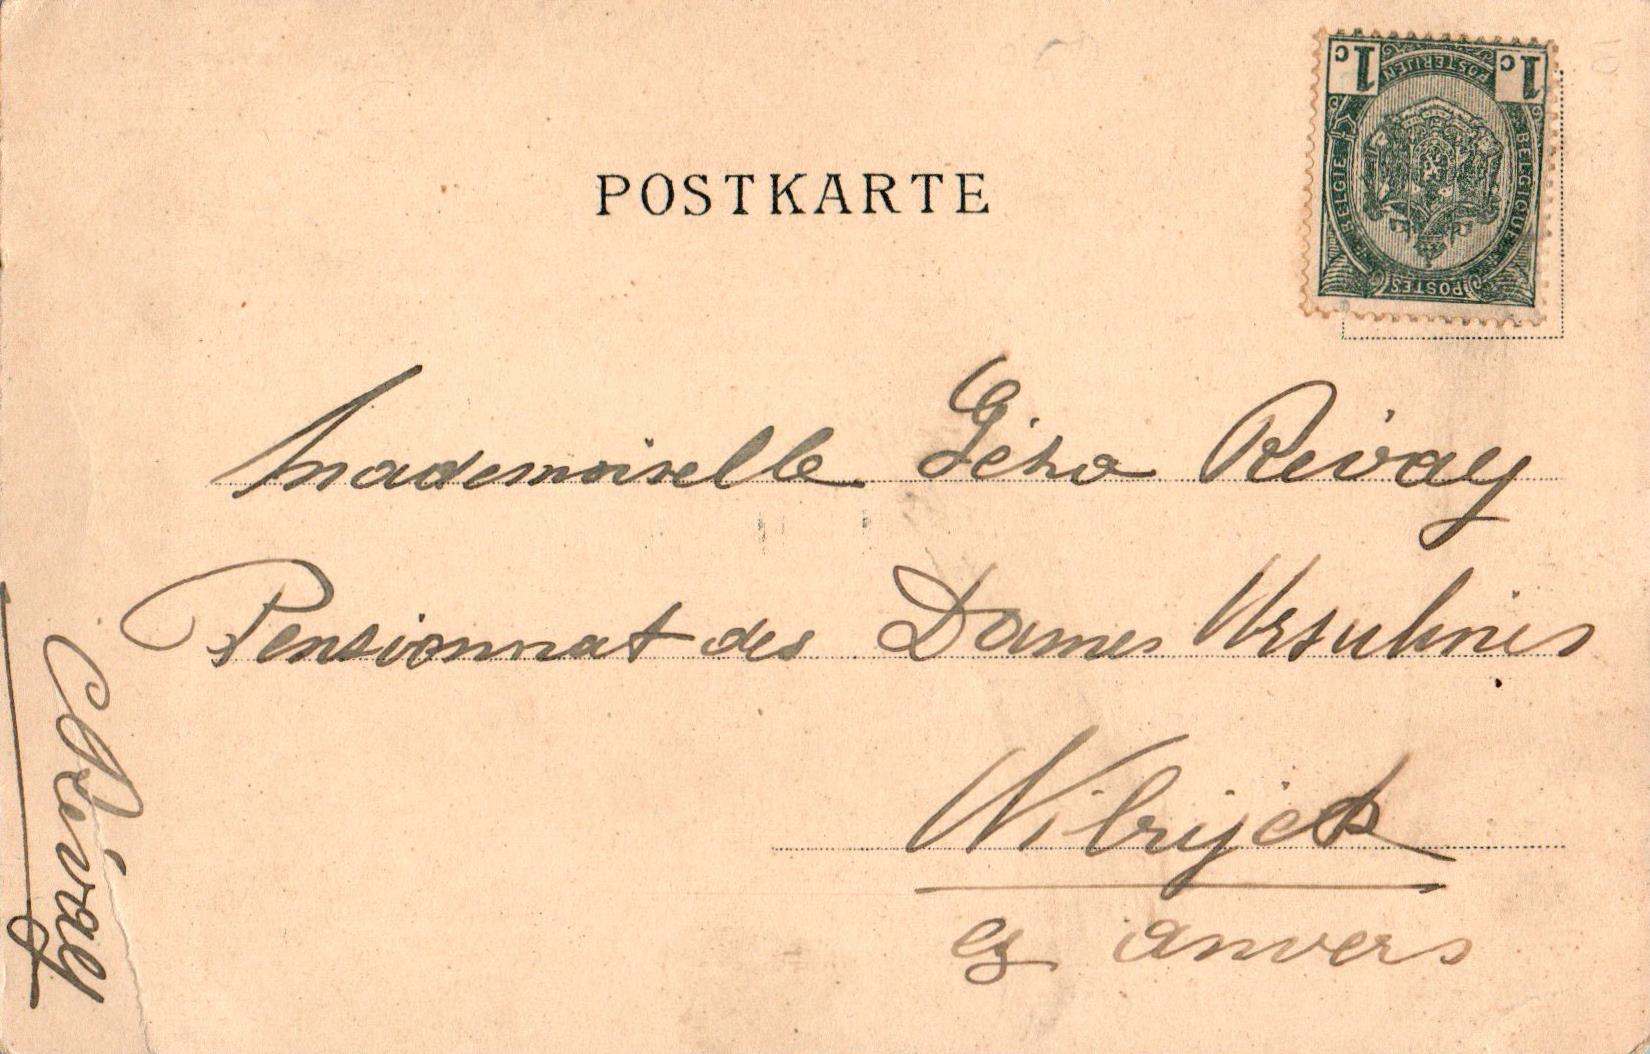 POSTKARTE
1c 1c
POSTERIJEN
BELGIE
BELGIQUE
POSTES
Mademoiselle Géza Révay
Pensionnat des Dames Ursulines
Wilrijck
Anvers
Révay